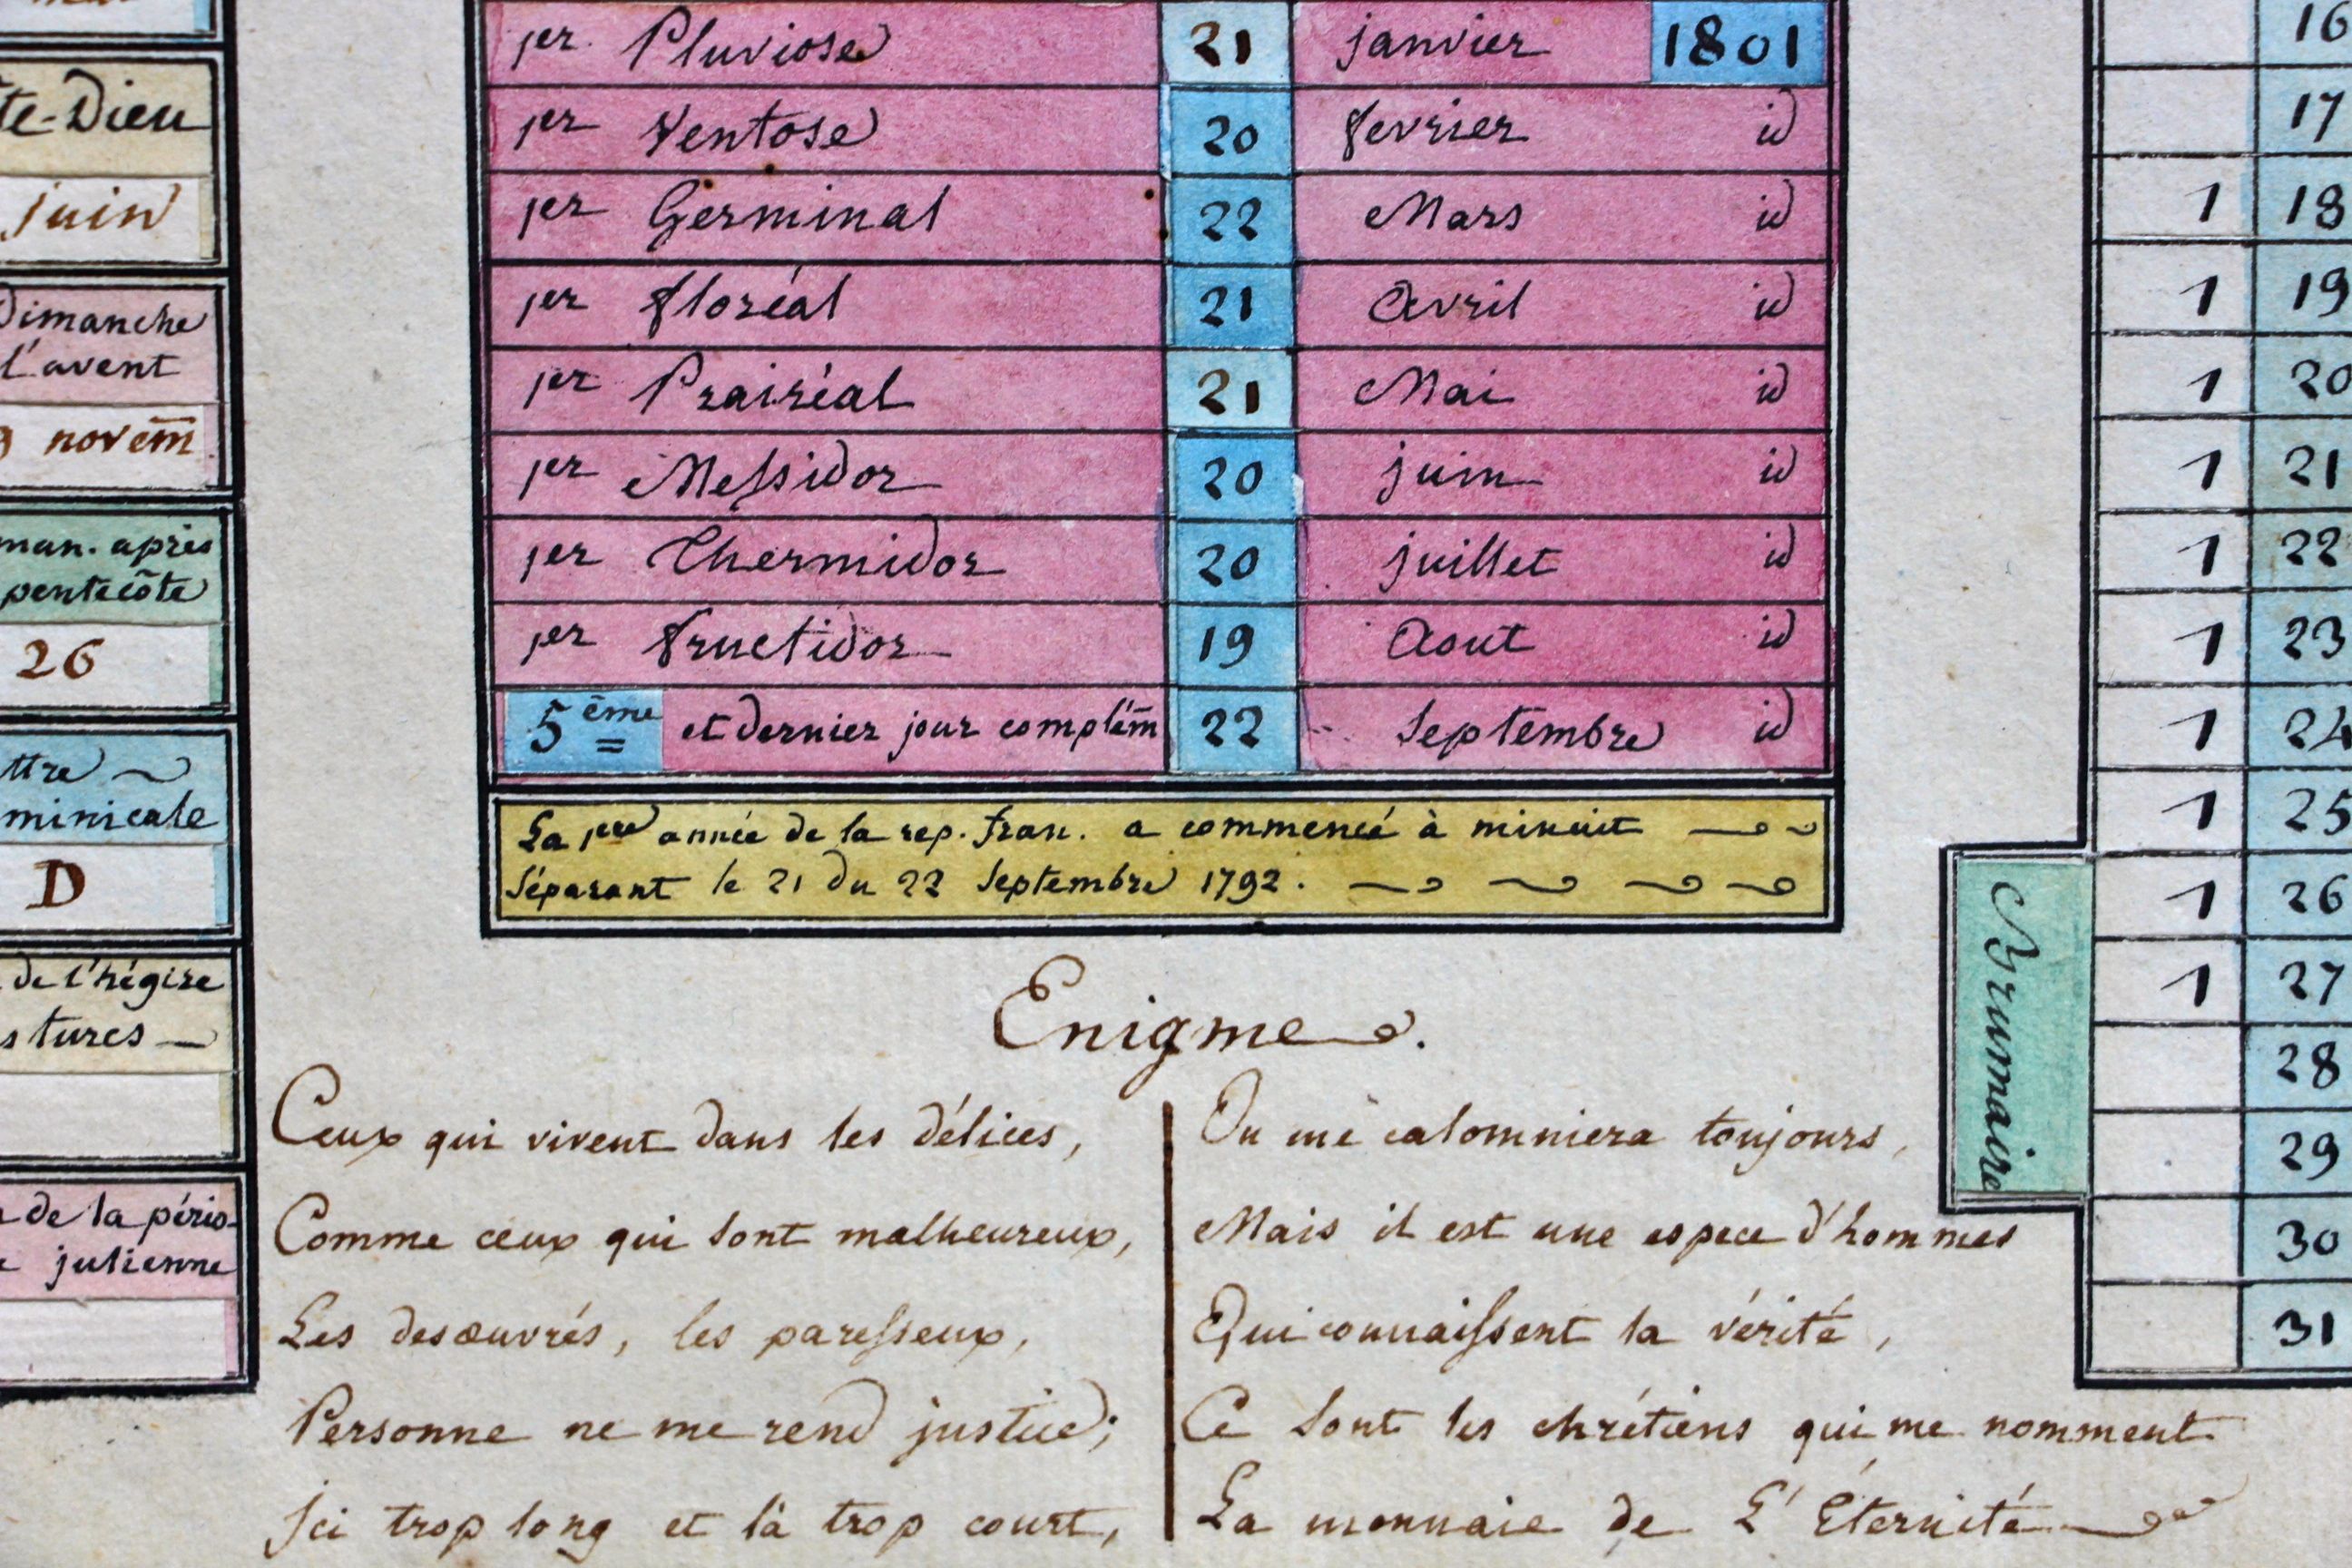 te-Dieu
juin
Dimanche
l'avent
novem̄
man. après
pentecôte
26
ttre
minicale
D
de l'hégire
s tures
de la pério-
julienne
1er Pluviose 21 janvier 1801
1er Ventose 20 fevrier id
1er Germinal 22 Mars id
1er floréal 21 Avril id
1er Prairéal 21 Mai id
1er Meſsidor 20 juin id
1er Thermidor 20 juillet id
1er fructidor 19 Aout id
5ème et dernier jour complém̄ 22 Septembre id
La 1ere année de la rep. fran. a commencé à minuit
Séparant le 21 du 22 Septembre 1792.
Enigme.
Ceux qui vivent dans les délices,
Comme ceux qui sont malheureux,
Les desœuvrés, les pareſseux,
Personne ne me rend justice;
Ici trop long et là trop court,
On me calomniera toujours,
Mais il est une espece d'hommes
Qui connaiſsent la vérité,
Ce sont les chrétiens qui me nomment
La monnaie de L'Éternité
Brumaire
16
17
1 18
1 19
1 20
1 21
1 22
1 23
1 24
1 25
1 26
1 27
28
29
30
31